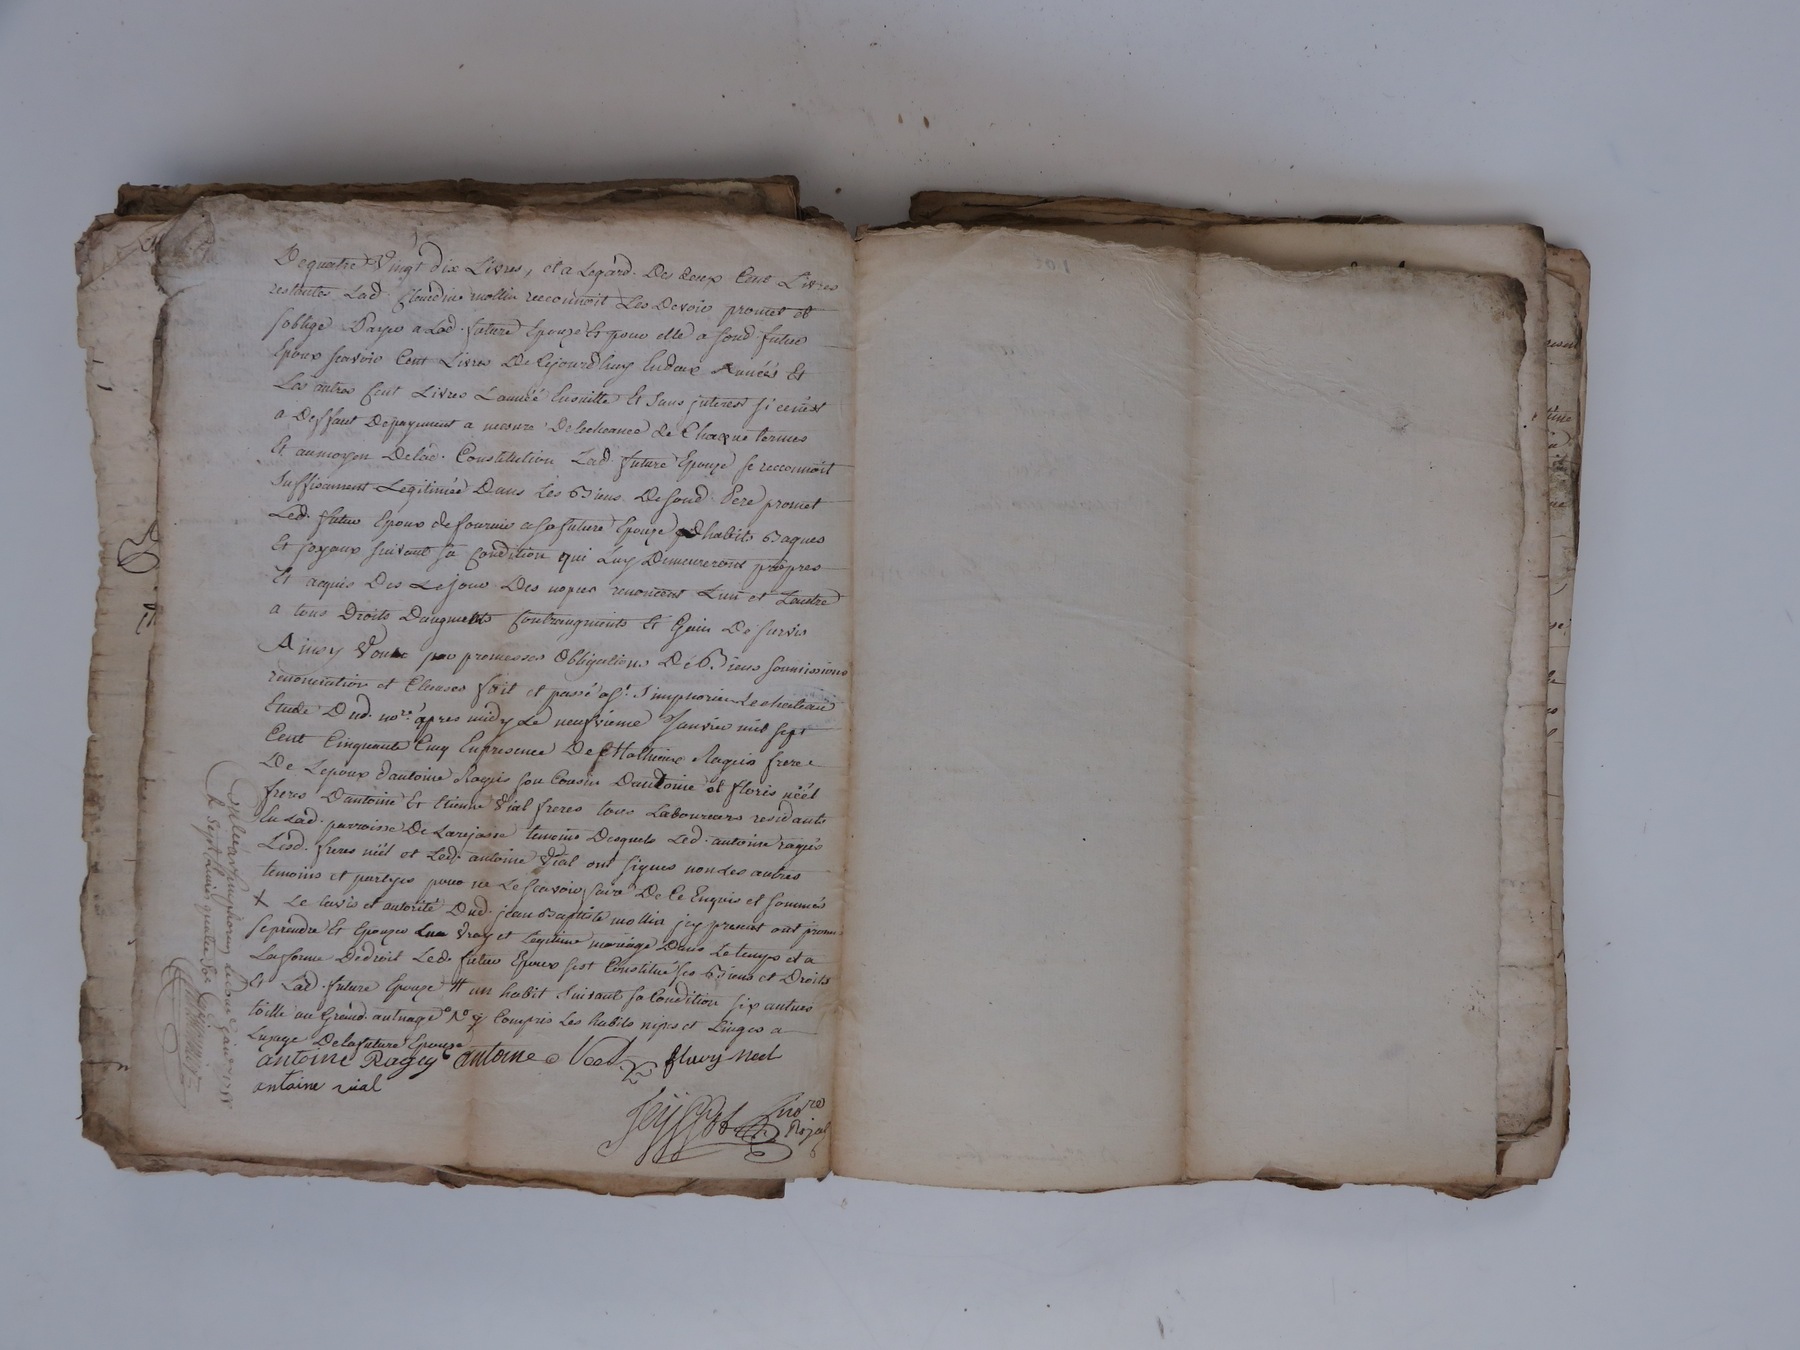 De quatre Vingt dix Livres, et a Legard Des deux Cent Livres
restantes Lad. Claudine mollin reconnoit Les Devoir promet et
soblige Payer a Lad. future Epouze Et pour elle a sond. futur
Epoux scavoir Cent Livres De Cejourdhuy En deux Années Et
Les autres Cent Livres Lannéé Ensuitte Et sans jnterest si cenest
a Deffaut Depayement a mesure De Lecheance de Chaque termes
Et aumoyen Delad. Constitution Lad. future Epouze se reconnoit
suffisament Legitimée Dans Les Biens De sond. Pere promet
Led. futur Epoux de fournir a sa future Epouze habits Bagues
Et joyaux suivant sa Condition qui Luy Demeureront propres
Et acquis Des Le jour Des nopces renoncent Lun et Lautre
a tous Droits Daugments Contraugments Et Gain De survie
Ainsy Voulu par promesses Obligations De Biens soumissions
renonciation et Clauses fait et passé a St. Simphorien Le chateau
Etude Dud. nore. apres midy Le neufvieme Janvier mil sept
Cent Cinquante Cinq En presence De Mathieux Ragéis frere
De Lepoux dantoine Ragéis son Cousin Dantoine et floris néél
freres Dantoine Et Etienne Vial freres tous Laboureurs residants
En Lad. parroisse De Larajasse temoins Desquels Led. antoine ragéis
Lesd. freres néél et Led. antoine Vial ont signes non Les autres
temoins et partyes pour ne Le scavoir faire De Ce Enquis et sommés
X De Lavis et autorité Dud. jean Baptiste mollin jcy present ont promis
se prendre Et Epouzer En Vray et Legitime mariage Dans Le temps et a
La forme De droit Led. futur Epoux sest Constitué ses Biens et Droits
Et Lad. future Epouze # un habit suivant sa Condition six autnes
toille un Grand. autnage y Compris Les habits nipes et Linges a
Lusage De la future Epouze
antoine Ragey antoine Neel fleury neel
antoine vial
nore
Royal